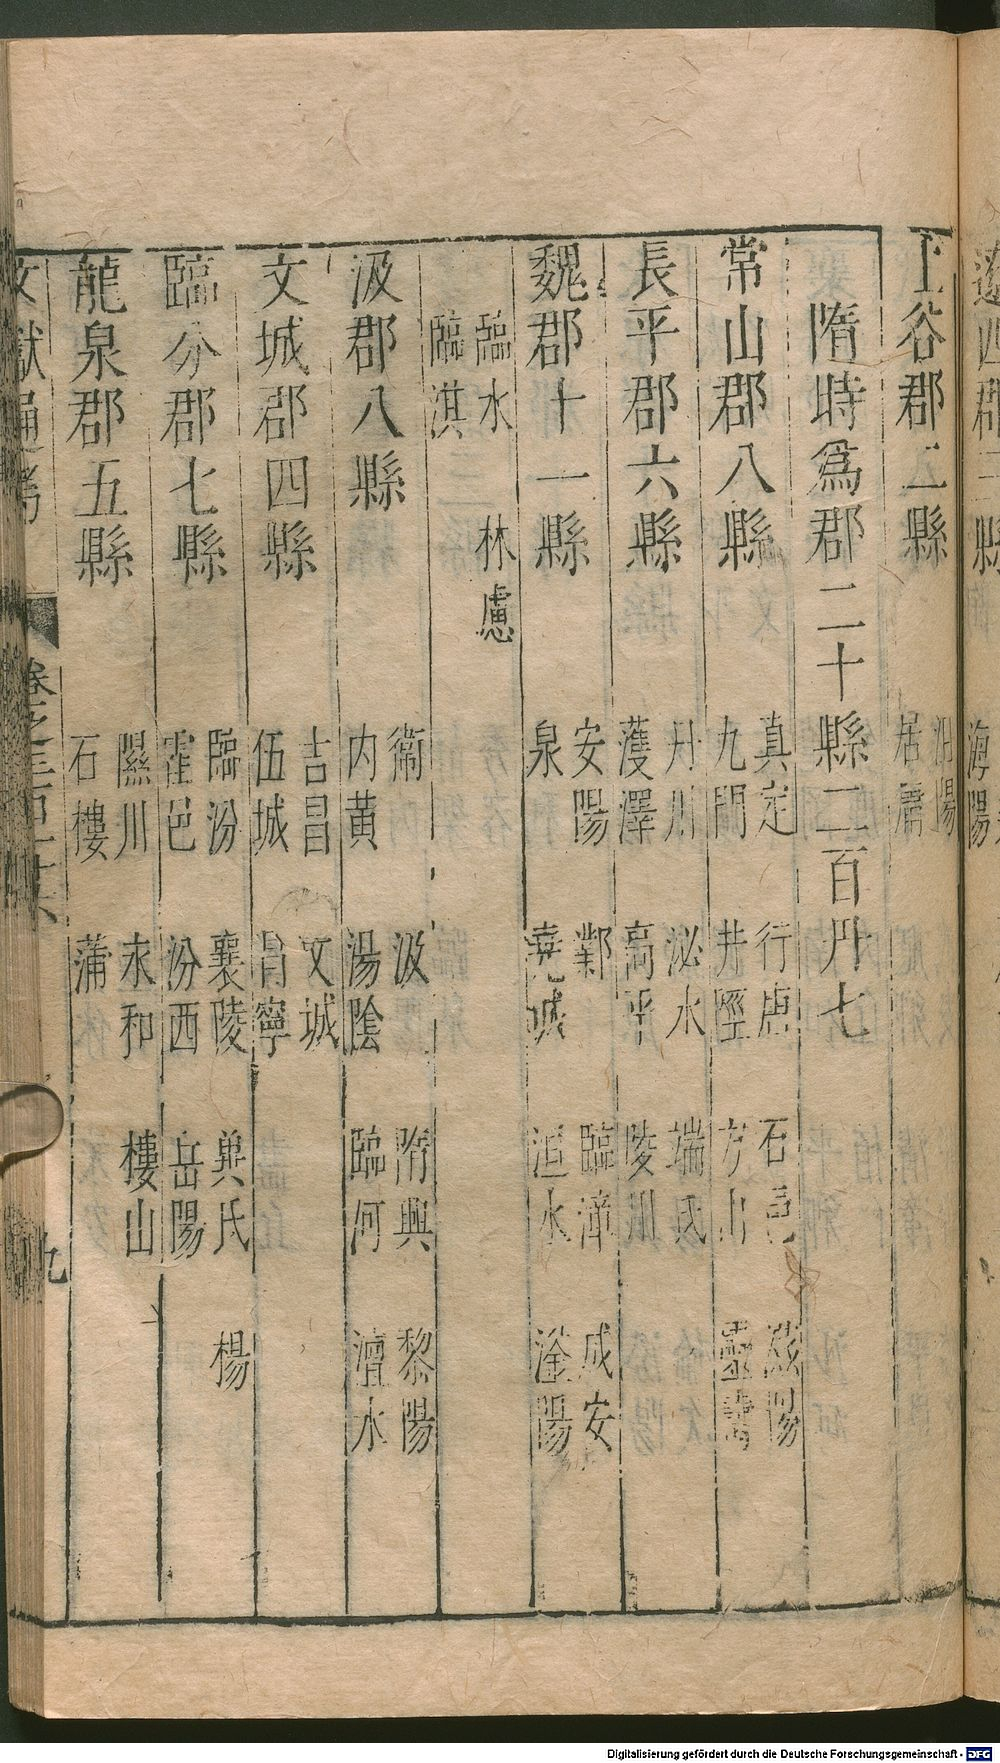 上谷郡二縣 沮陽 居庸
隋時爲郡二十縣二百丹七
常山郡八縣 真定 行唐 石邑 滋陽 九門 井陘 房山 靈壽
長平郡六縣 丹川 泌水 端氏 濩澤 高平 陵川
魏郡十一縣 安陽 鄴 臨漳 成安 泉 堯城 洹水 滏陽
臨水 林慮 臨淇
汲郡八縣 衞 汲 隋興 黎陽 内黄 湯陰 臨河 澶水
文城郡四縣 吉昌 文城 伍城 昌寧
臨分郡七縣 臨汾 襄陵 兾氏 楊 霍邑 汾西 岳陽
龍泉郡五縣 隰川 永和 樓山 石樓 蒲
文獻通考 卷之三百一十六 九
遼西郡三縣
海陽
Digitalisierung gefördert durch die Deutsche Forschungsgemeinschaft - DFG